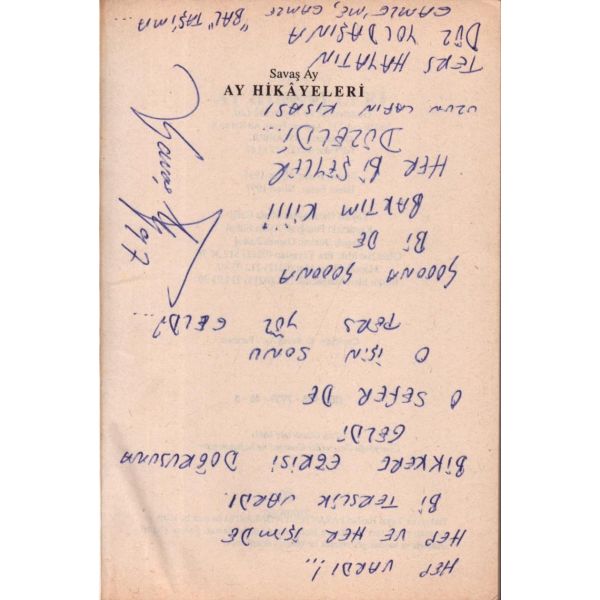 Savaş Ay
AY HİKÂYELERİ
HEP VARDI!..
HEP VE HER İŞİMDE
Bİ TERSLİK VARDI.
BİKKERE EĞRİSİ DOĞRUSUNA
GELDİ
O SEFER DE
O İŞİN SONU
TERS YÜZ GELDİ?...
ŞOOONA ŞOOONA
Bİ DE
BAKTIM Kİİİİ
HER Bİ ŞEYLER
DÜZELDİ...
UZUN LAFIN KISASI
TERS HAYATIN
DÜZ YOLDAŞINA
"BAL" TAŞIMA
Savaş Ay
97